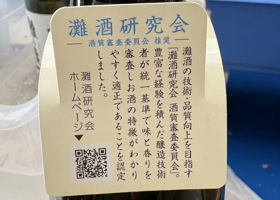 灘酒研究会
酒質審査委員会 推奨
灘酒の技術・品質向上を目指す
「灘酒研究会 酒質審査委員会」。
豊富な経験を積んだ醸造技術
者が統一基準で味と香りを
審査しお酒の特徴がわかり
やすく適正であることを認定
しました。
灘酒研究会
ホームページ▼